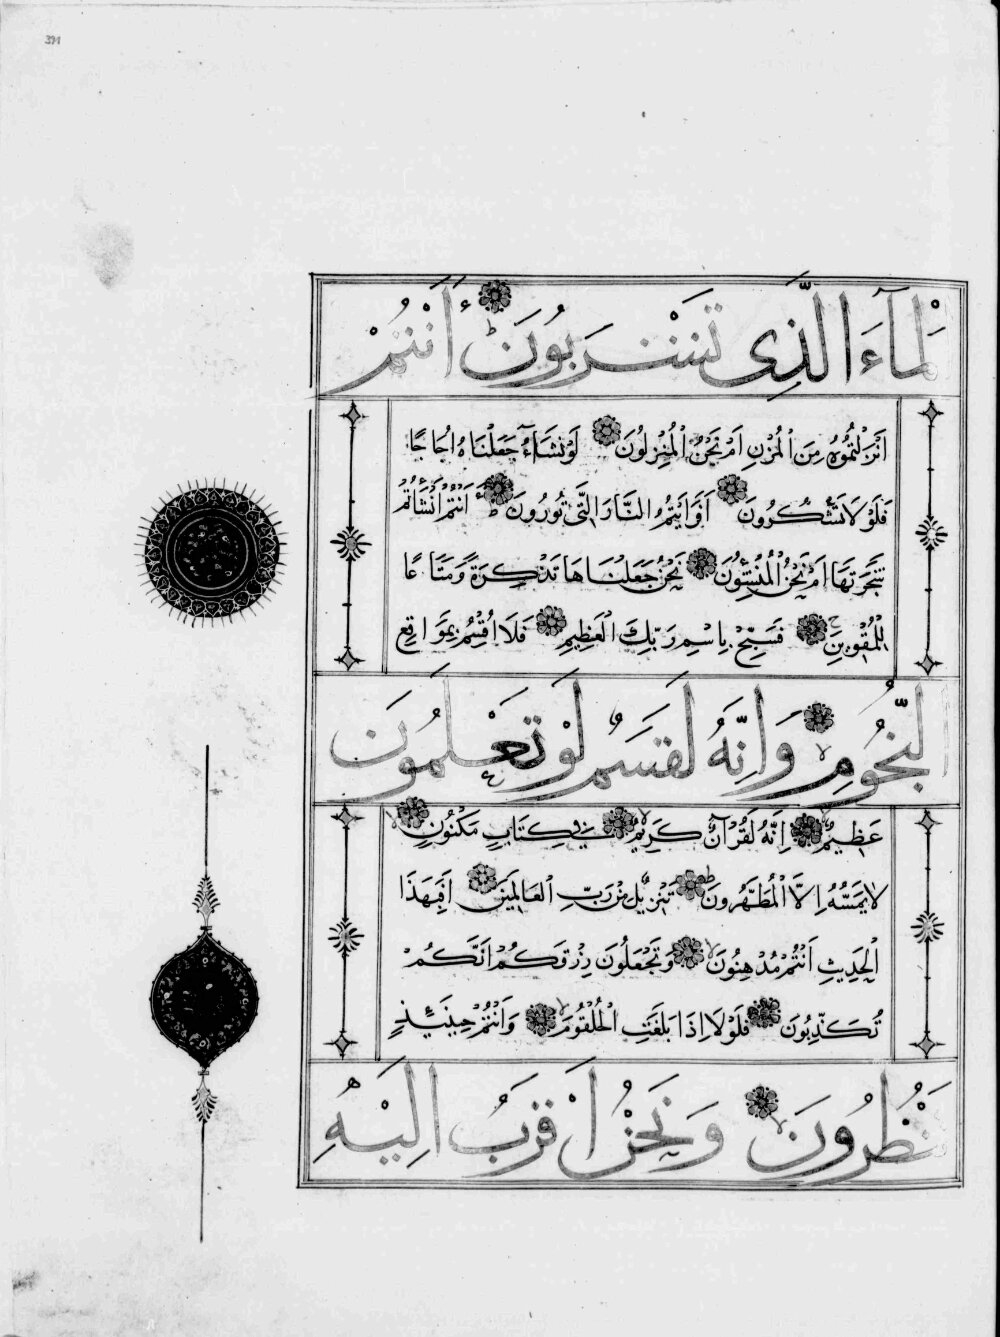 391
الْمَآءَ الَّذِى تَشْرَبُونَ ءَاَنْتُمْ
اَنْزَلْتُمُوهُ مِنَ الْمُزْنِ اَمْ نَحْنُ الْمُنْزِلُونَ لَوْ نَشَآءُ جَعَلْنَاهُ اُجَاجًا
فَلَوْلَا تَشْكُرُونَ اَفَرَاَيْتُمُ النَّارَ الَّتِى تُورُونَ ءَاَنْتُمْ اَنْشَاْتُمْ
شَجَرَتَهَا اَمْ نَحْنُ الْمُنْشِئُونَ نَحْنُ جَعَلْنَاهَا تَذْكِرَةً وَمَتَاعًا
لِلْمُقْوِينَ فَسَبِّحْ بِاسْمِ رَبِّكَ الْعَظِيمِ فَلَا اُقْسِمُ بِمَوَاقِعِ
النُّجُومِ وَاِنَّهُ لَقَسَمٌ لَوْ تَعْلَمُونَ
عَظِيمٌ اِنَّهُ لَقُرْآنٌ كَرِيمٌ فِى كِتَابٍ مَكْنُونٍ
لَا يَمَسُّهُ اِلَّا الْمُطَهَّرُونَ تَنْزِيلٌ مِنْ رَبِّ الْعَالَمِينَ اَفَبِهَذَا
الْحَدِيثِ اَنْتُمْ مُدْهِنُونَ وَتَجْعَلُونَ رِزْقَكُمْ اَنَّكُمْ
تُكَذِّبُونَ فَلَوْلَا اِذَا بَلَغَتِ الْحُلْقُومَ وَاَنْتُمْ حِينَئِذٍ
تَنْظُرُونَ وَنَحْنُ اَقْرَبُ اِلَيْهِ